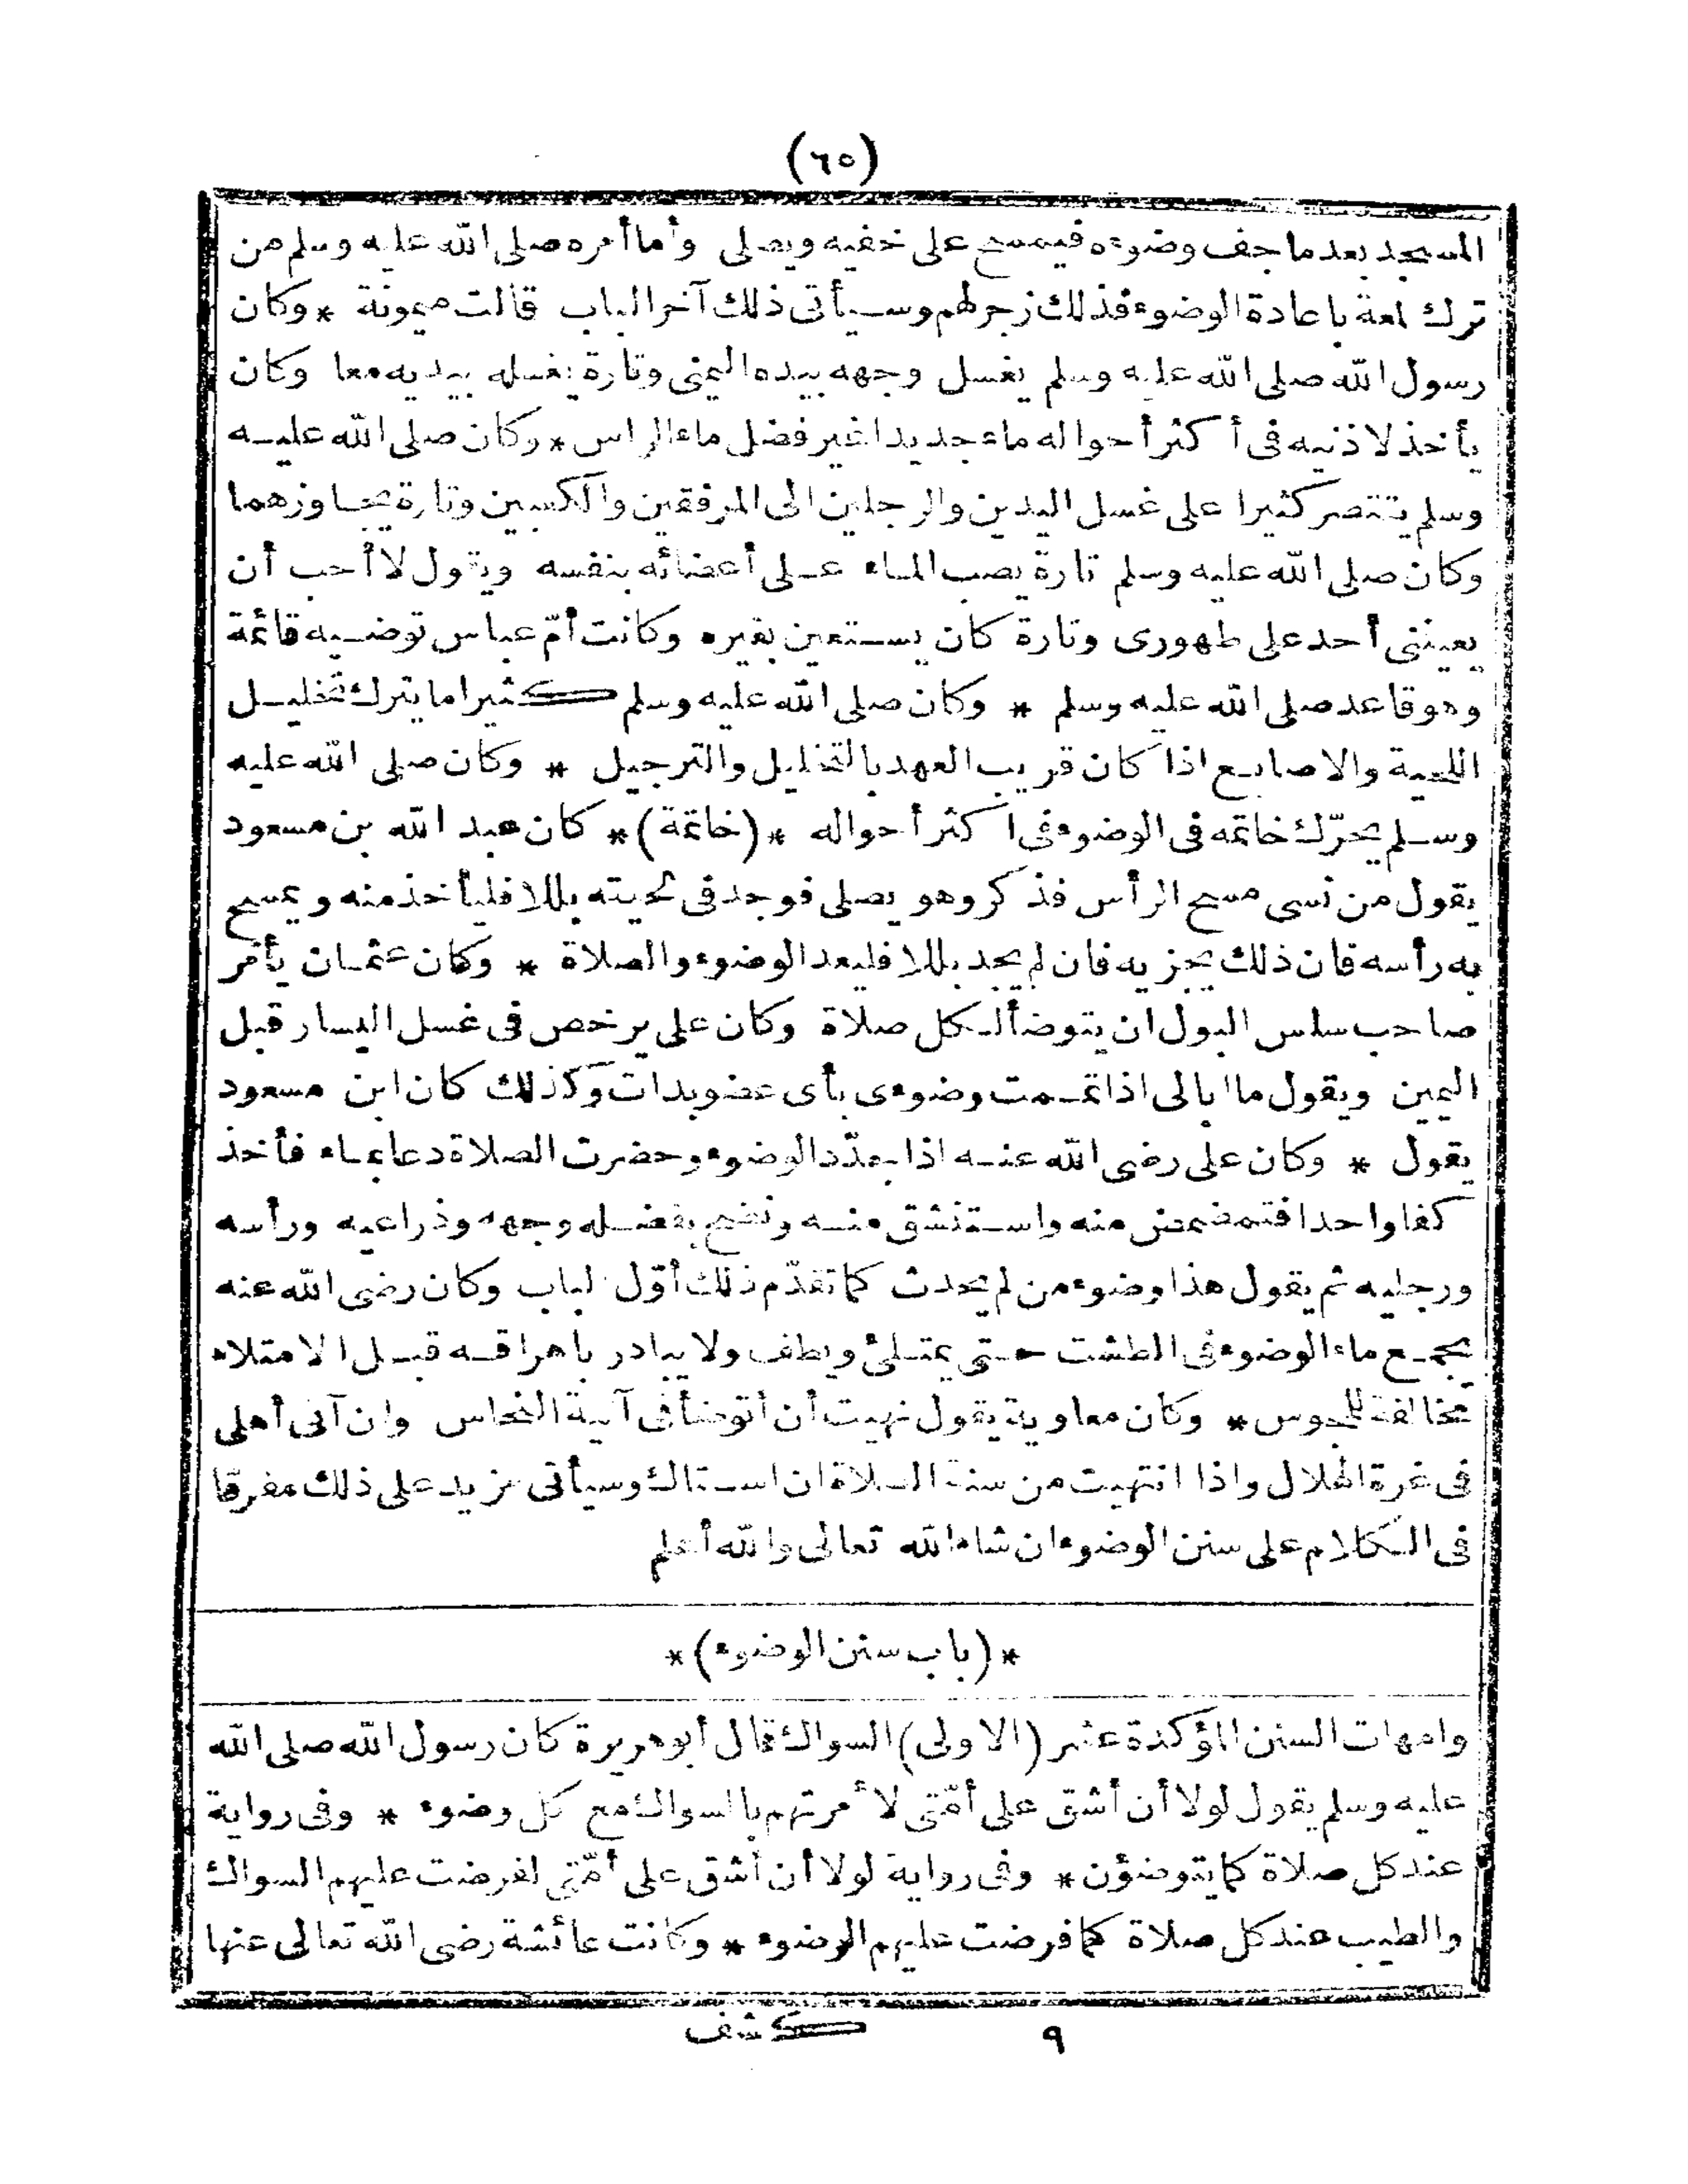 (٦٥)
المسجد بعد ما جف وضوءه فيمسح على خفيه ويصلى وأما أمره صلى الله عليه وسلم من
ترك لمعة باعادة الوضوء فذلك زجر لهم وسيأتى ذلك آخر الباب قالت ميمونة * وكان
رسول الله صلى الله عليه وسلم يغسل وجهه بيده اليمنى وتارة يغسله بيديه معا وكان
يأخذ لاذنيه فى أكثر أحواله ماء جديدا غير فضل ماء الراس * وكان صلى الله عليه
وسلم يقتصر كثيرا على غسل اليدين والرجلين الى المرفقين والكعبين وتارة يجاوزهما
وكان صلى الله عليه وسلم تارة يصب الماء على أعضائه بنفسه ويقول لا أحب أن
يعيننى أحد على طهورى وتارة كان يستعين بغيره وكانت أمّ عياش توضيه قائمة
وهو قاعد صلى الله عليه وسلم * وكان صلى الله عليه وسلم كثيرا ما يترك تخليل
اللحية والاصابع اذا كان قريب العهد بالتخليل والترجيل * وكان صلى الله عليه
وسلم يحرّك خاتمه فى الوضوء فى اكثر أحواله *(خاتمة)* كان عبد الله بن مسعود
يقول من نسى مسح الرأس فذكر وهو يصلى فوجد فى لحيته بللا فليأخذ منه ويمسح
به رأسه فان ذلك يجزيه فان لم يجد بللا فليعد الوضوء والصلاة * وكان عثمان يأمر
صاحب سلس البول ان يتوضأ لكل صلاة وكان على يرخص فى غسل اليسار قبل
اليمين ويقول ما ابالى اذا تممت وضوءى بأى عضو بدات وكذلك كان ابن مسعود
يقول * وكان على رضى الله عنه اذا جدّد الوضوء وحضرت الصلاة دعا بماء فأخذ
كفا واحدا فتمضمض منه واستنشق منه ونضح بفضله وجهه وذراعيه ورأسه
ورجليه ثم يقول هذا وضوء من لم يحدث كما تقدّم ذلك أوّل الباب وكان رضى الله عنه
يجمع ماء الوضوء فى الطشت حتى يمتلئ ويطف ولا يبادر باهراقه قبل الامتلاء
مخالفة للمجوس * وكان معاوية يقول نهيت أن أتوضأ فى آنية النحاس وان آتى أهلى
فى غرة الهلال واذا انتهيت من سنة الصلاة ان استاك وسيأتى مزيد على ذلك مفرقا
فى الكلام على سنن الوضوء ان شاء الله تعالى والله أعلم
*(باب سنن الوضوء)*
وامهات السنن المؤكدة عشر (الاولى) السواك قال أبو هريرة كان رسول الله صلى الله
عليه وسلم يقول لولا أن أشق على أمّتى لأمرتهم بالسواك مع كل وضوء * وفى رواية
عند كل صلاة كما يتوضؤن * وفى رواية لولا أن أشق على أمّتى لفرضت عليهم السواك
والطيب عند كل صلاة كما فرضت عليهم الوضوء * وكانت عائشة رضى الله تعالى عنها
٩ كشف